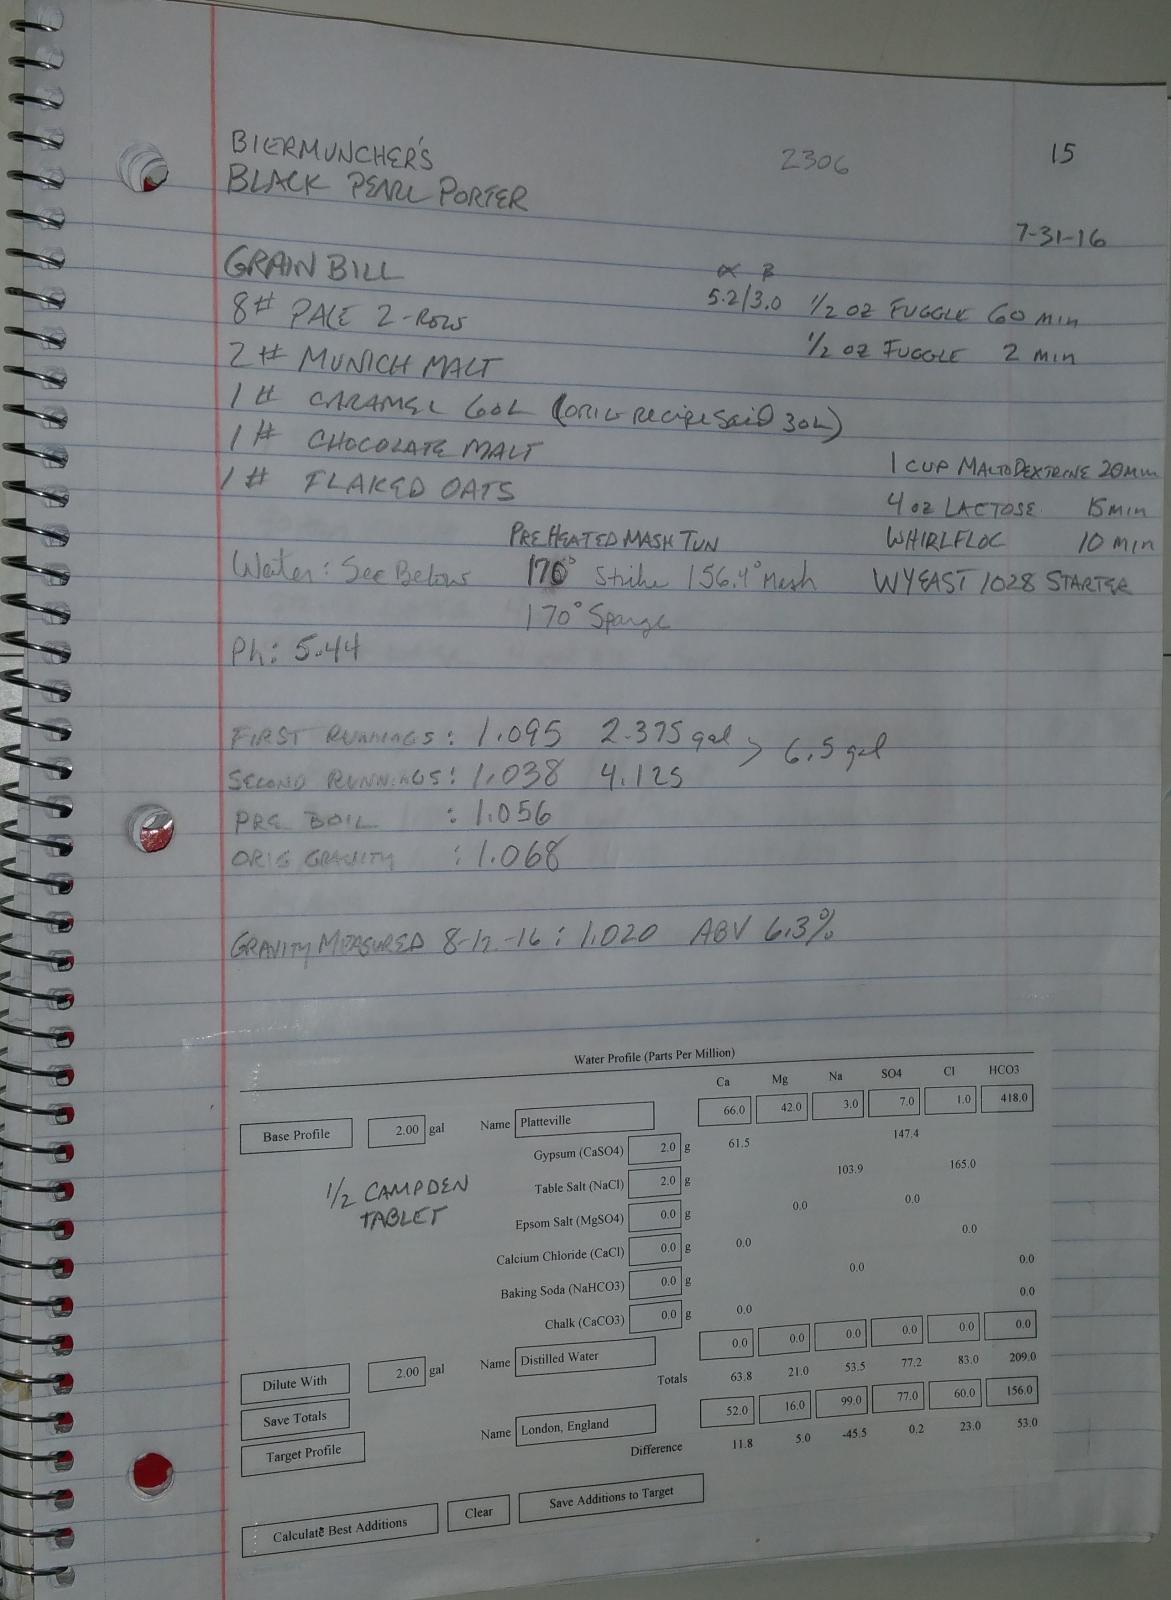 BIERMUNCHER'S 2306 15
BLACK PEARL PORTER
7-31-16
GRAIN BILL ∝ β
8# PALE 2-ROW 5.2/3.0 1/2 OZ FUGGLE 60 MIN
2# MUNICH MALT 1/2 OZ FUGGLE 2 MIN
1# CARAMEL 60L (ORIG RECIPE SAID 30L)
1# CHOCOLATE MALT 1 CUP MALTODEXTRINE 20MIN
1# FLAKED OATS 4 OZ LACTOSE 15 MIN
PREHEATED MASH TUN WHIRLFLOC 10 MIN
Water: See Below 170° Strike 156.4° Mash WYEAST 1028 STARTER
170° Sparge
Ph: 5.44
FIRST RUNNINGS: 1.095 2.375 gal > 6.5 gal
SECOND RUNNINGS: 1.038 4.125
PRE BOIL : 1.056
ORIG GRAVITY : 1.068
GRAVITY MEASURED 8-12-16: 1.020 ABV 6.3%
Water Profile (Parts Per Million)
Ca Mg Na SO4 Cl HCO3
Base Profile 2.00 gal Name Platteville 66.0 42.0 3.0 7.0 1.0 418.0
Gypsum (CaSO4) 2.0 g 61.5 147.4
1/2 CAMPDEN Table Salt (NaCl) 2.0 g 103.9 165.0
TABLET Epsom Salt (MgSO4) 0.0 g 0.0 0.0
Calcium Chloride (CaCl) 0.0 g 0.0 0.0
Baking Soda (NaHCO3) 0.0 g 0.0 0.0
Chalk (CaCO3) 0.0 g 0.0 0.0
Dilute With 2.00 gal Name Distilled Water 0.0 0.0 0.0 0.0 0.0 0.0
Save Totals Totals 63.8 21.0 53.5 77.2 83.0 209.0
Target Profile Name London, England 52.0 16.0 99.0 77.0 60.0 156.0
Difference 11.8 5.0 -45.5 0.2 23.0 53.0
Calculate Best Additions Clear Save Additions to Target